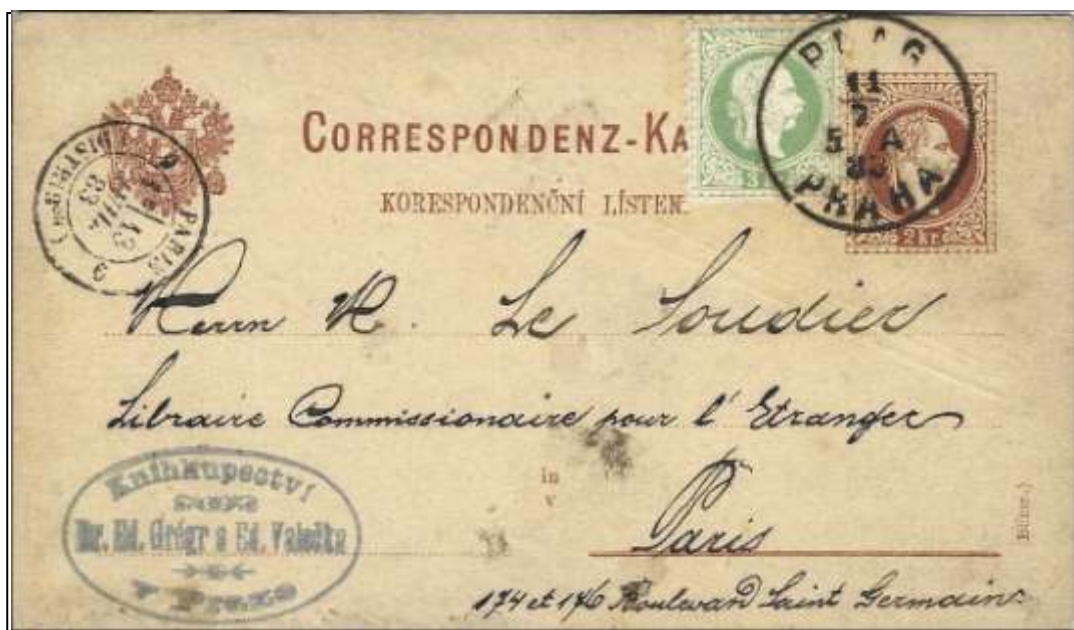 CORRESPONDENZ-KA
KORESPONDENČNÍ LÍSTEK
3
PRAG
11
7
5 A
83
PRAHA
2 Kr.
PARIS
DISTRIB
13
83
Herrn H. Le Soudier
Libraire Commissionaire pour l' Etranger
in
v
Paris
174 et 176 Boulevard Saint Germain
(Böhm.)
Knihkupectví
Dr. Ed. Grégr a Ed. Valečka
v Praze